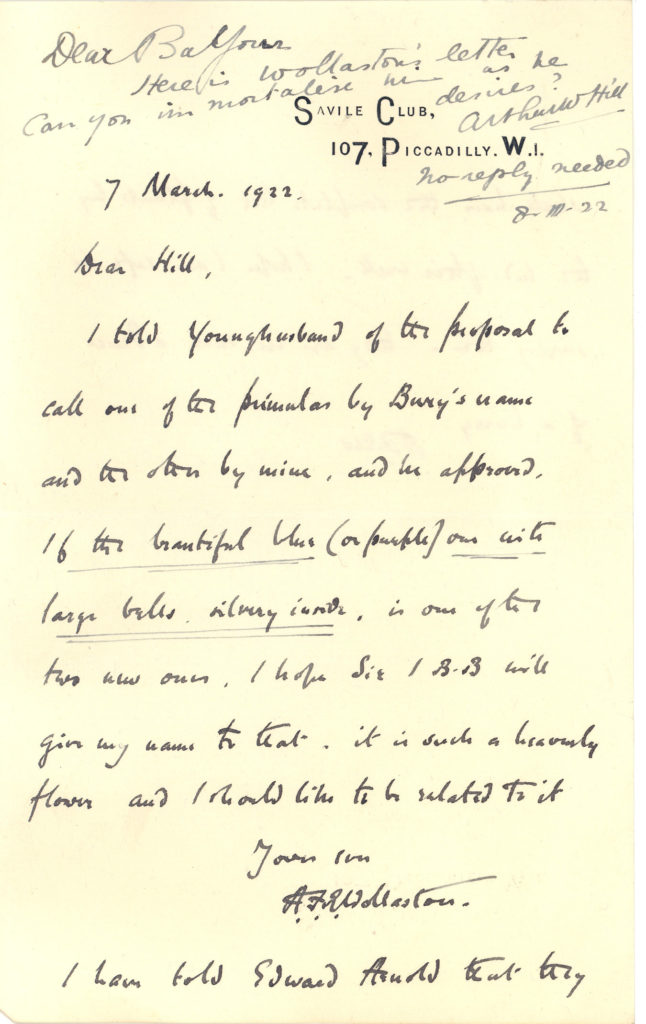 Dear Balfour
Here is Wollaston's letter
Can you immortalise him as he
desires?
Arthur W Hill
no reply needed
8-III-22
SAVILE CLUB,
107, PICCADILLY. W.I.
7 March. 1922.
Dear Hill,
I told Younghusband of the proposal to
call one of the primulas by Bury's name
and the other by mine, and he approved.
If the beautiful blue (or purple) one with
large bells, silvery inside, is one of the
two new ones, I hope Sir I B-B will
give my name to that. it is such a heavenly
flower and I should like to be related to it
Yours
A.F.R. Wollaston.
I have told Edward Arnold that they